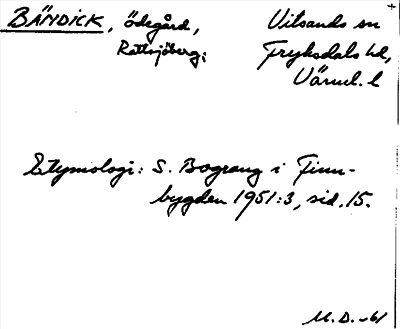 BÄNDICK, ödegård, Vitsands sn
Rattsjöberg, Fryksdals hd,
Värml. l
Etymologi: S. Bograng i Finn-
bygden 1951:3, sid. 15.
M. D. -61